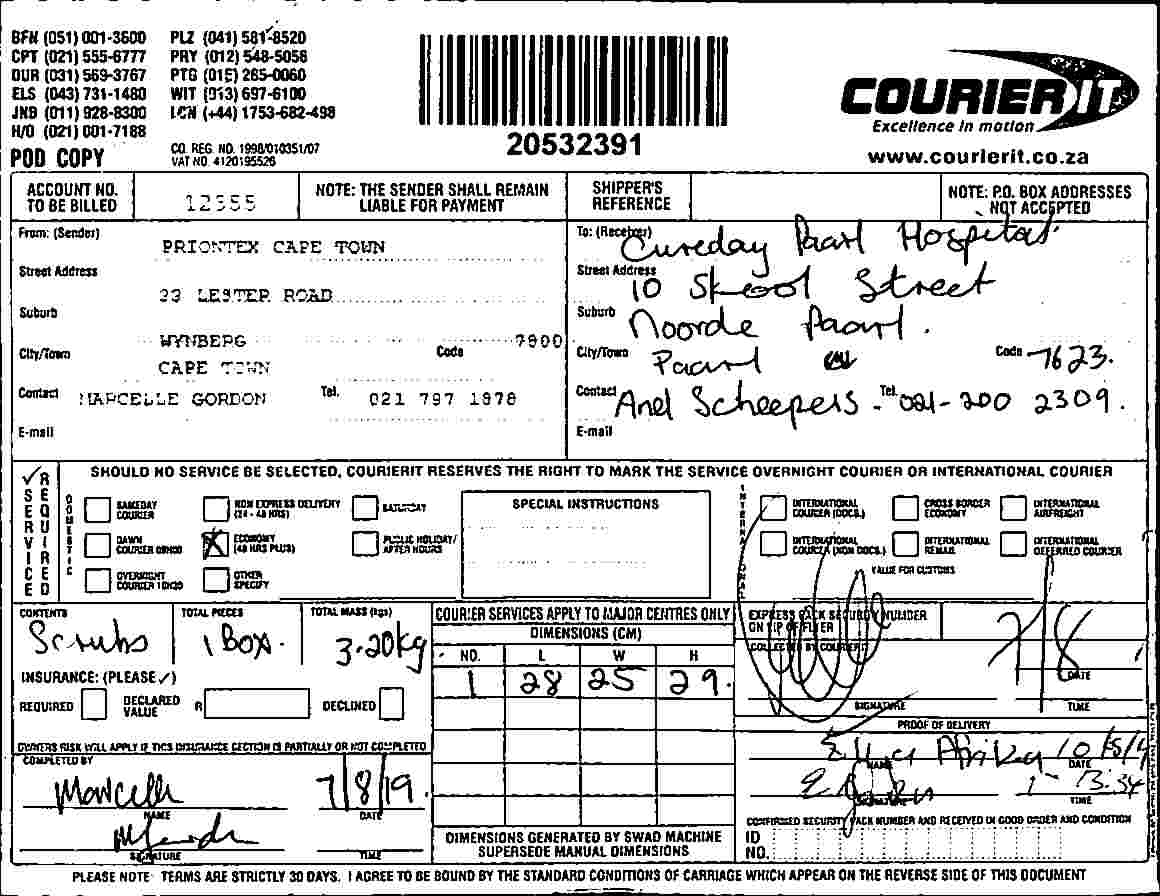 BFN (051) 001-3600 PLZ (041) 581-8520
CPT (021) 555-6777 PRY (012) 548-5058
DUR (031) 569-3767 PTG (015) 265-0060
ELS (043) 731-1480 WIT (013) 697-6100
JNB (011) 928-8300 LCN (+44) 1753-682-498
H/O (021) 001-7188
POD COPY
CO. REG. NO. 1998/010351/07
VAT NO. 4120195526
20532391
COURIER IT
Excellence in motion
www.courierit.co.za
ACCOUNT NO. TO BE BILLED
12555
NOTE: THE SENDER SHALL REMAIN LIABLE FOR PAYMENT
SHIPPER'S REFERENCE
NOTE: P.O. BOX ADDRESSES NOT ACCEPTED
From: (Sender) PRIONTEX CAPE TOWN
Street Address 23 LESTER ROAD
Suburb WYNBERG
Code 7800
City/Town CAPE TOWN
Contact MARCELLE GORDON Tel. 021 797 1878
E-mail
To: (Receiver) Cureday Paarl Hospital
Street Address 10 Skool Street
Suburb Noorde Paarl.
City/Town Paarl Code 7623.
Contact Anel Scheepers - Tel. 021-200 2309.
E-mail
✓ SERVICE REQUIRED
SHOULD NO SERVICE BE SELECTED, COURIERIT RESERVES THE RIGHT TO MARK THE SERVICE OVERNIGHT COURIER OR INTERNATIONAL COURIER
DOMESTIC
SAMEDAY COURIER
NON EXPRESS DELIVERY (24 - 48 HRS)
SATURDAY
DAWN COURIER 08H00
X ECONOMY (48 HRS PLUS)
PUBLIC HOLIDAY/ AFTER HOURS
OVERNIGHT COURIER 10H30
OTHER SPECIFY
SPECIAL INSTRUCTIONS
INTERNATIONAL
INTERNATIONAL COURIER (DOCS.)
CROSS BORDER ECONOMY
INTERNATIONAL AIRFREIGHT
INTERNATIONAL COURIER (NON DOCS.)
INTERNATIONAL REMAIL
INTERNATIONAL DEFERRED COURIER
VALUE FOR CUSTOMS
CONTENTS Scrubs
TOTAL PIECES 1 Box.
TOTAL MASS (kgs) 3.20kg
INSURANCE: (PLEASE ✓)
REQUIRED DECLARED VALUE R DECLINED
OWNERS RISK WILL APPLY IF THIS INSURANCE SECTION IS PARTIALLY OR NOT COMPLETED
COMPLETED BY
Marcelle 7/8/19.
NAME DATE
SIGNATURE TIME
COURIER SERVICES APPLY TO MAJOR CENTRES ONLY
DIMENSIONS (CM)
NO. L W H
1 28 25 29.
DIMENSIONS GENERATED BY SWAD MACHINE SUPERSEDE MANUAL DIMENSIONS
EXPRESS PACK SECURITY NUMBER ON TIP OF FLYER
COLLECTED BY COURIERIT
7/8
DATE
SIGNATURE TIME
PROOF OF DELIVERY
Afrika
NAME DATE
13:34
SIGNATURE TIME
CONFIRMED SECURITY PACK NUMBER AND RECEIVED IN GOOD ORDER AND CONDITION
ID NO.
PLEASE NOTE TERMS ARE STRICTLY 30 DAYS. I AGREE TO BE BOUND BY THE STANDARD CONDITIONS OF CARRIAGE WHICH APPEAR ON THE REVERSE SIDE OF THIS DOCUMENT